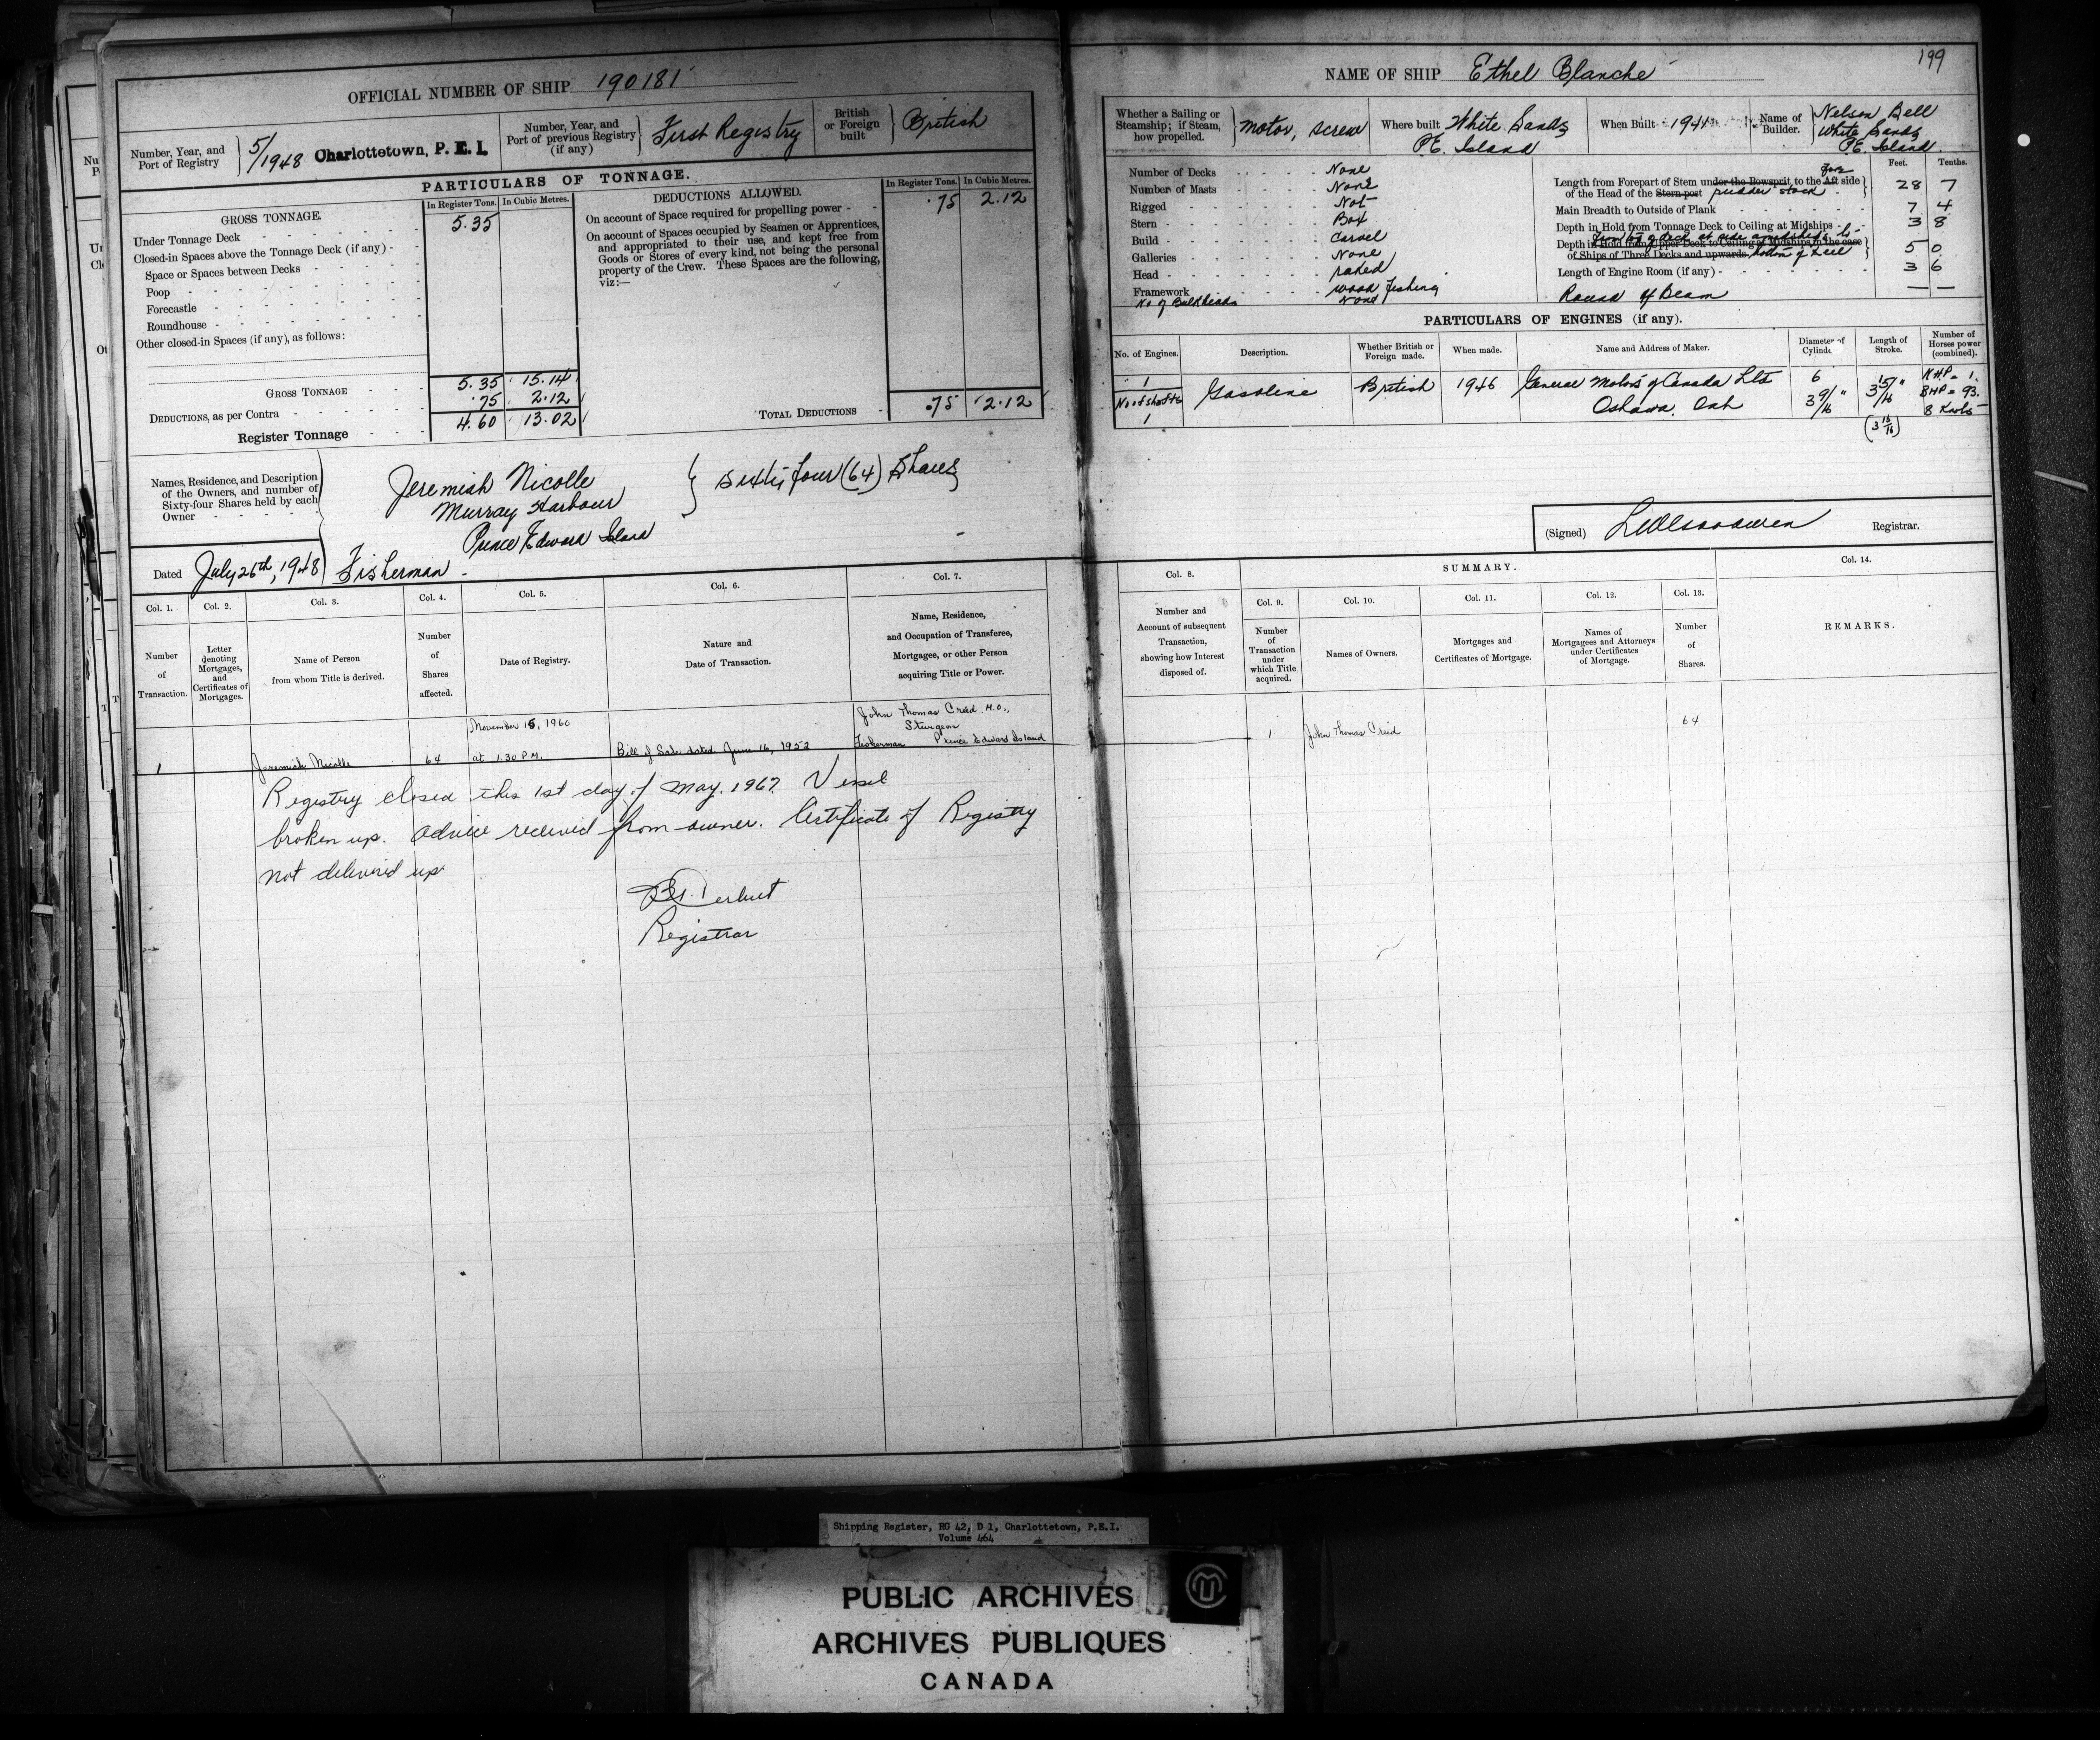 OFFICIAL NUMBER OF SHIP 190181
Number, Year, and Port of Registry } 5/1948 Charlottetown, P. E. I.
Number, Year, and Port of previous Registry (if any) } First Registry
British or Foreign built } British
PARTICULARS OF TONNAGE.
GROSS TONNAGE.
In Register Tons. In Cubic Metres.
Under Tonnage Deck - 5.35
Closed-in Spaces above the Tonnage Deck (if any) -
Space or Spaces between Decks -
Poop -
Forecastle -
Roundhouse -
Other closed-in Spaces (if any), as follows:
GROSS TONNAGE - 5.35 15.14
DEDUCTIONS, as per Contra - .75 2.12
Register Tonnage - 4.60 13.02
DEDUCTIONS ALLOWED.
In Register Tons. In Cubic Metres.
On account of Space required for propelling power - .75 2.12
On account of Spaces occupied by Seamen or Apprentices,
and appropriated to their use, and kept free from
Goods or Stores of every kind, not being the personal
property of the Crew. These Spaces are the following,
viz:—
TOTAL DEDUCTIONS - .75 2.12
Names, Residence, and Description
of the Owners, and number of
Sixty-four Shares held by each
Owner -
Jeremiah Nicolle } Sixty four (64) Shares
Murray Harbour
Prince Edward Island
Dated July 26th, 1948 Fisherman.
Col. 1. Col. 2. Col. 3. Col. 4. Col. 5. Col. 6. Col. 7.
Number of Transaction.
Letter denoting Mortgages, and Certificates of Mortgages.
Name of Person from whom Title is derived.
Number of Shares affected.
Date of Registry.
Nature and Date of Transaction.
Name, Residence, and Occupation of Transferee, Mortgagee, or other Person acquiring Title or Power.
November 15, 1960 John Thomas Creed
Sturgeon
1 Jeremiah Nicolle 64 at 1.30 P.M. Bill of Sale dated June 16, 1952 Fisherman Prince Edward Island
Registry closed this 1st day of May, 1967 Vessel
broken up. Advice received from owner. Certificate of Registry
not delivered up
Registrar
199
NAME OF SHIP Ethel Blanche
Whether a Sailing or Steamship; if Steam, how propelled. } Motor, Screw
Where built White Sands P.E. Island
When Built 1941
Name of Builder. } Nelson Bell White Sands P.E. Island.
Number of Decks - None
Number of Masts - None
Rigged - Not
Stern - Box
Build - Carvel
Galleries - None
Head - raked
Framework - wood fishing
No of Bulkheads None
Feet. Tenths.
Length from Forepart of Stem under the Bowsprit to the Aft fore side
of the Head of the Stern-post rudder stock - 28 7
Main Breadth to Outside of Plank - 7 4
Depth in Hold from Tonnage Deck to Ceiling at Midships - 3 8
Depth in Hold from Upper Deck to Ceiling at Midships in the case
from top of deck at side amidships to
of Ships of Three Decks and upwards bottom of keel 5 0
Length of Engine Room (if any) - 3 6
Round of Beam — —
PARTICULARS OF ENGINES (if any).
No. of Engines. Description. Whether British or Foreign made. When made. Name and Address of Maker. Diameter of Cylind. Length of Stroke. Number of Horses power (combined).
1 Gasoline British 1946 General Motors of Canada Ltd 6 3 15/16" N.H.P = 1.
No of shafts Oshawa. Ont 3 9/16" B.H.P = 93.
1 (3 15/16) 8 Knots
(Signed) Registrar.
Col. 8. SUMMARY. Col. 14.
Col. 9. Col. 10. Col. 11. Col. 12. Col. 13.
Number and Account of subsequent Transaction, showing how Interest disposed of.
Number of Transaction under which Title acquired.
Names of Owners.
Mortgages and Certificates of Mortgage.
Names of Mortgagees and Attorneys under Certificates of Mortgage.
Number of Shares.
REMARKS.
1 John Thomas Creed 64
Shipping Register, RG 42, D 1, Charlottetown, P.E.I.
Volume 464
PUBLIC ARCHIVES
ARCHIVES PUBLIQUES
CANADA